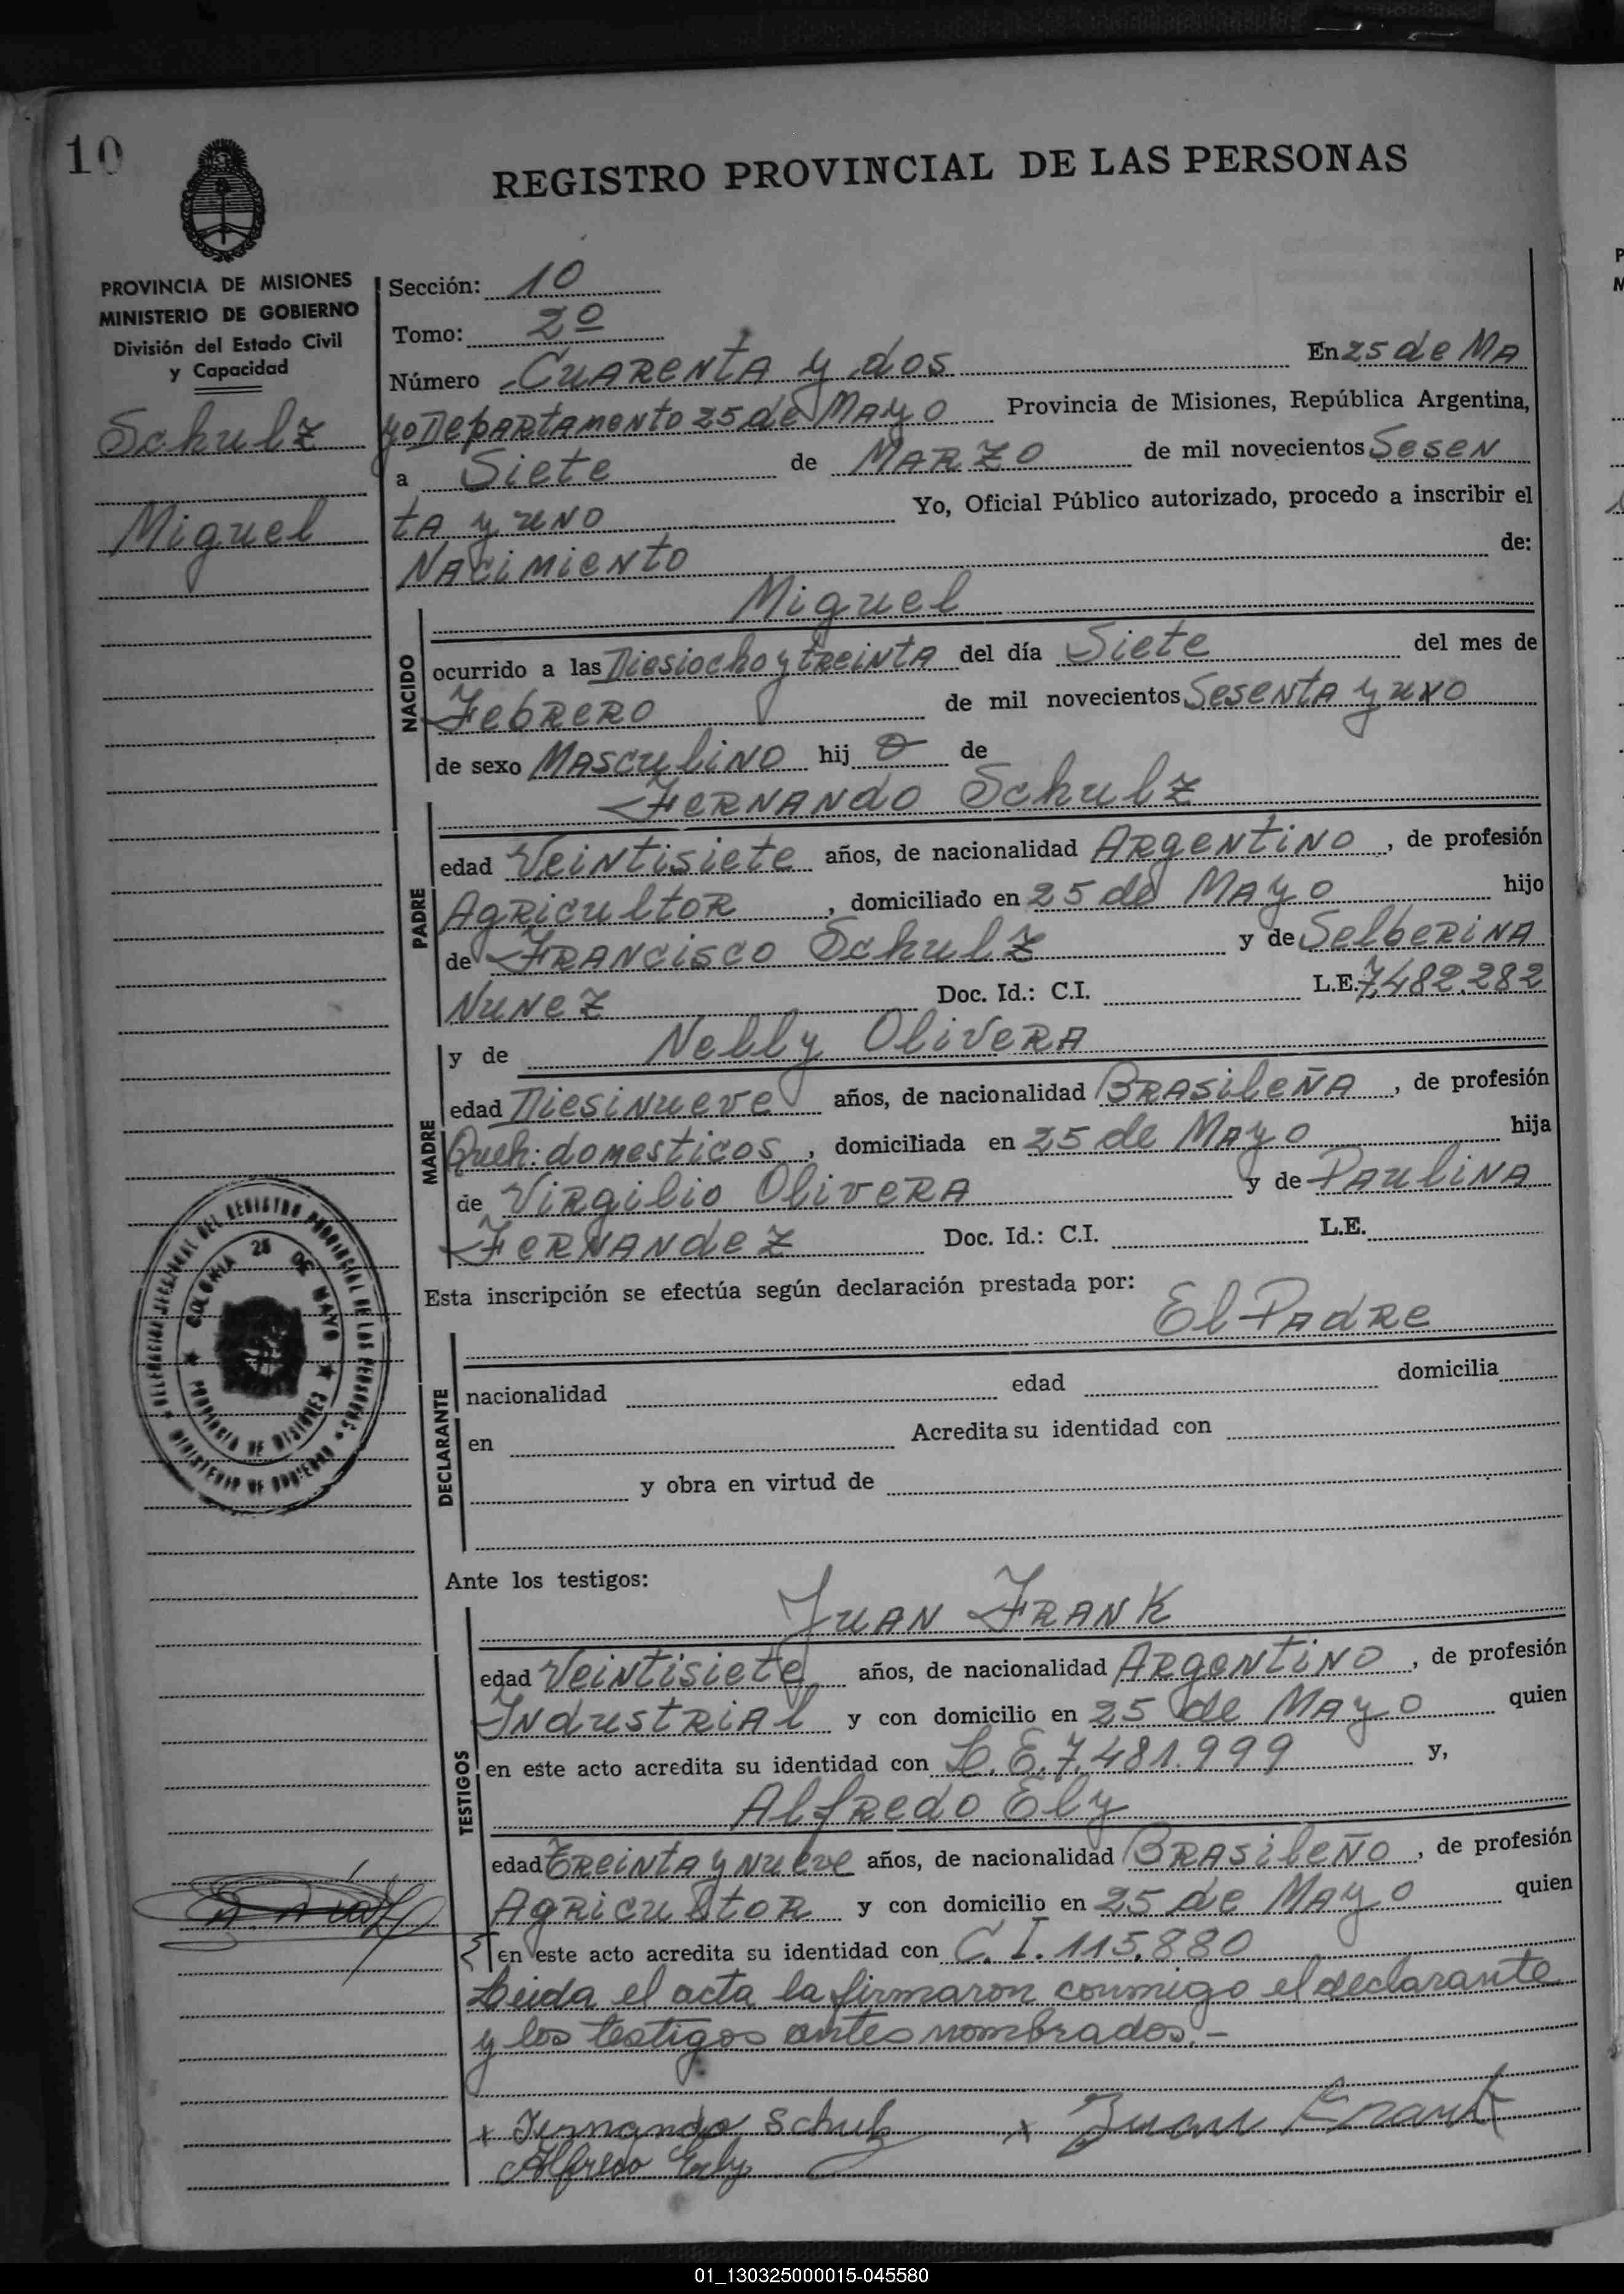 10
REGISTRO PROVINCIAL DE LAS PERSONAS
PROVINCIA DE MISIONES
MINISTERIO DE GOBIERNO
División del Estado Civil
y Capacidad
Schulz
Miguel
Sección: 10
Tomo: 2º
Número Cuarenta y dos En 25 de Ma
yo Departamento 25 de Mayo Provincia de Misiones, República Argentina,
a Siete de Marzo de mil novecientos Sesen
ta y uno Yo, Oficial Público autorizado, procedo a inscribir el
Nacimiento de:
Miguel
NACIDO
ocurrido a las Diesiocho y treinta del día Siete del mes de
Febrero de mil novecientos Sesenta y uno
de sexo Masculino hij o de
Fernando Schulz
PADRE
edad Veintisiete años, de nacionalidad Argentino, de profesión
Agricultor, domiciliado en 25 de Mayo hijo
de Francisco Schulz y de Selberina
Nunez Doc. Id.: C.I. L.E. 7.482.282
y de Nelly Olivera
MADRE
edad Diesinueve años, de nacionalidad Brasileña, de profesión
Queh: domesticos, domiciliada en 25 de Mayo hija
de Virgilio Olivera y de Paulina
Fernandez Doc. Id.: C.I. L.E.
Esta inscripción se efectúa según declaración prestada por:
El Padre
DECLARANTE
nacionalidad edad domicilia
en Acredita su identidad con
y obra en virtud de
COLONIA 25 DE MAYO
PROVINCIA DE MISIONES
MINISTERIO DE GOBIERNO
Ante los testigos:
Juan Frank
TESTIGOS
edad Veintisiete años, de nacionalidad Argentino, de profesión
Industrial y con domicilio en 25 de Mayo quien
en este acto acredita su identidad con L.E. 7.481.999 y,
Alfredo Ely
edad Treinta y nueve años, de nacionalidad Brasileño, de profesión
Agricultor y con domicilio en 25 de Mayo quien
en este acto acredita su identidad con C.I. 115.880
Leida el acta la firmaron conmigo el declarante
y los testigos antes nombrados.-
x Fernando Schulz x Juan Frank
Alfredo Ely
01_130325000015-045580